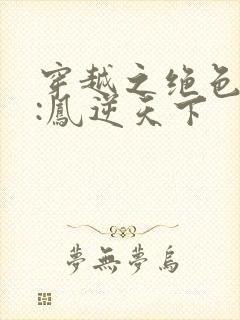 穿越之绝色
:鳳逆天下
夢無夢烏